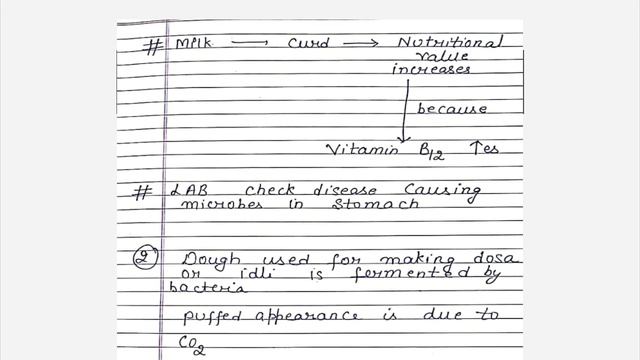 # Milk → Curd → Nutritional
value
increases
because
Vitamin B12 ↑es
# LAB check disease causing
microbes in Stomach
② Dough used for making dosa
or idli is fermented by
bacteria
puffed appearance is due to
CO2